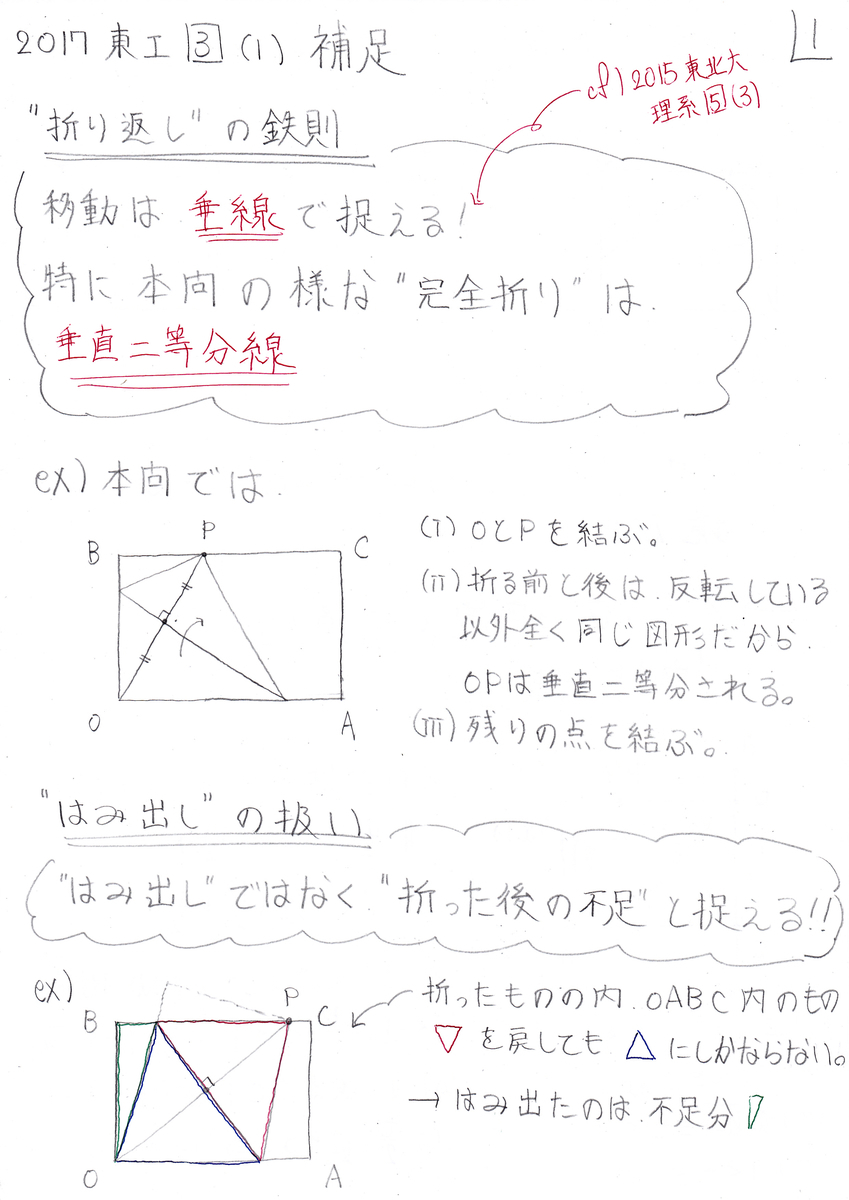 2017 東工 3 (1) 補足
1
cf) 2015 東北大
理系 5 (3)
"折り返し" の鉄則
移動は 垂線で捉える!
特に本向の様な "完全折り" は、
垂直二等分線
ex) 本向では、
B P C
O A
(i) OとPを結ぶ。
(ii) 折る前と後は、反転している
以外全く同じ図形だから、
OPは垂直二等分される。
(iii) 残りの点を結ぶ。
"はみ出し" の扱い
"はみ出し" ではなく、"折った後の不足" と捉える!!
ex)
B P C
O A
折ったものの内、OABC内のもの
▽を戻しても △にしかならない。
→ はみ出たのは、不足分